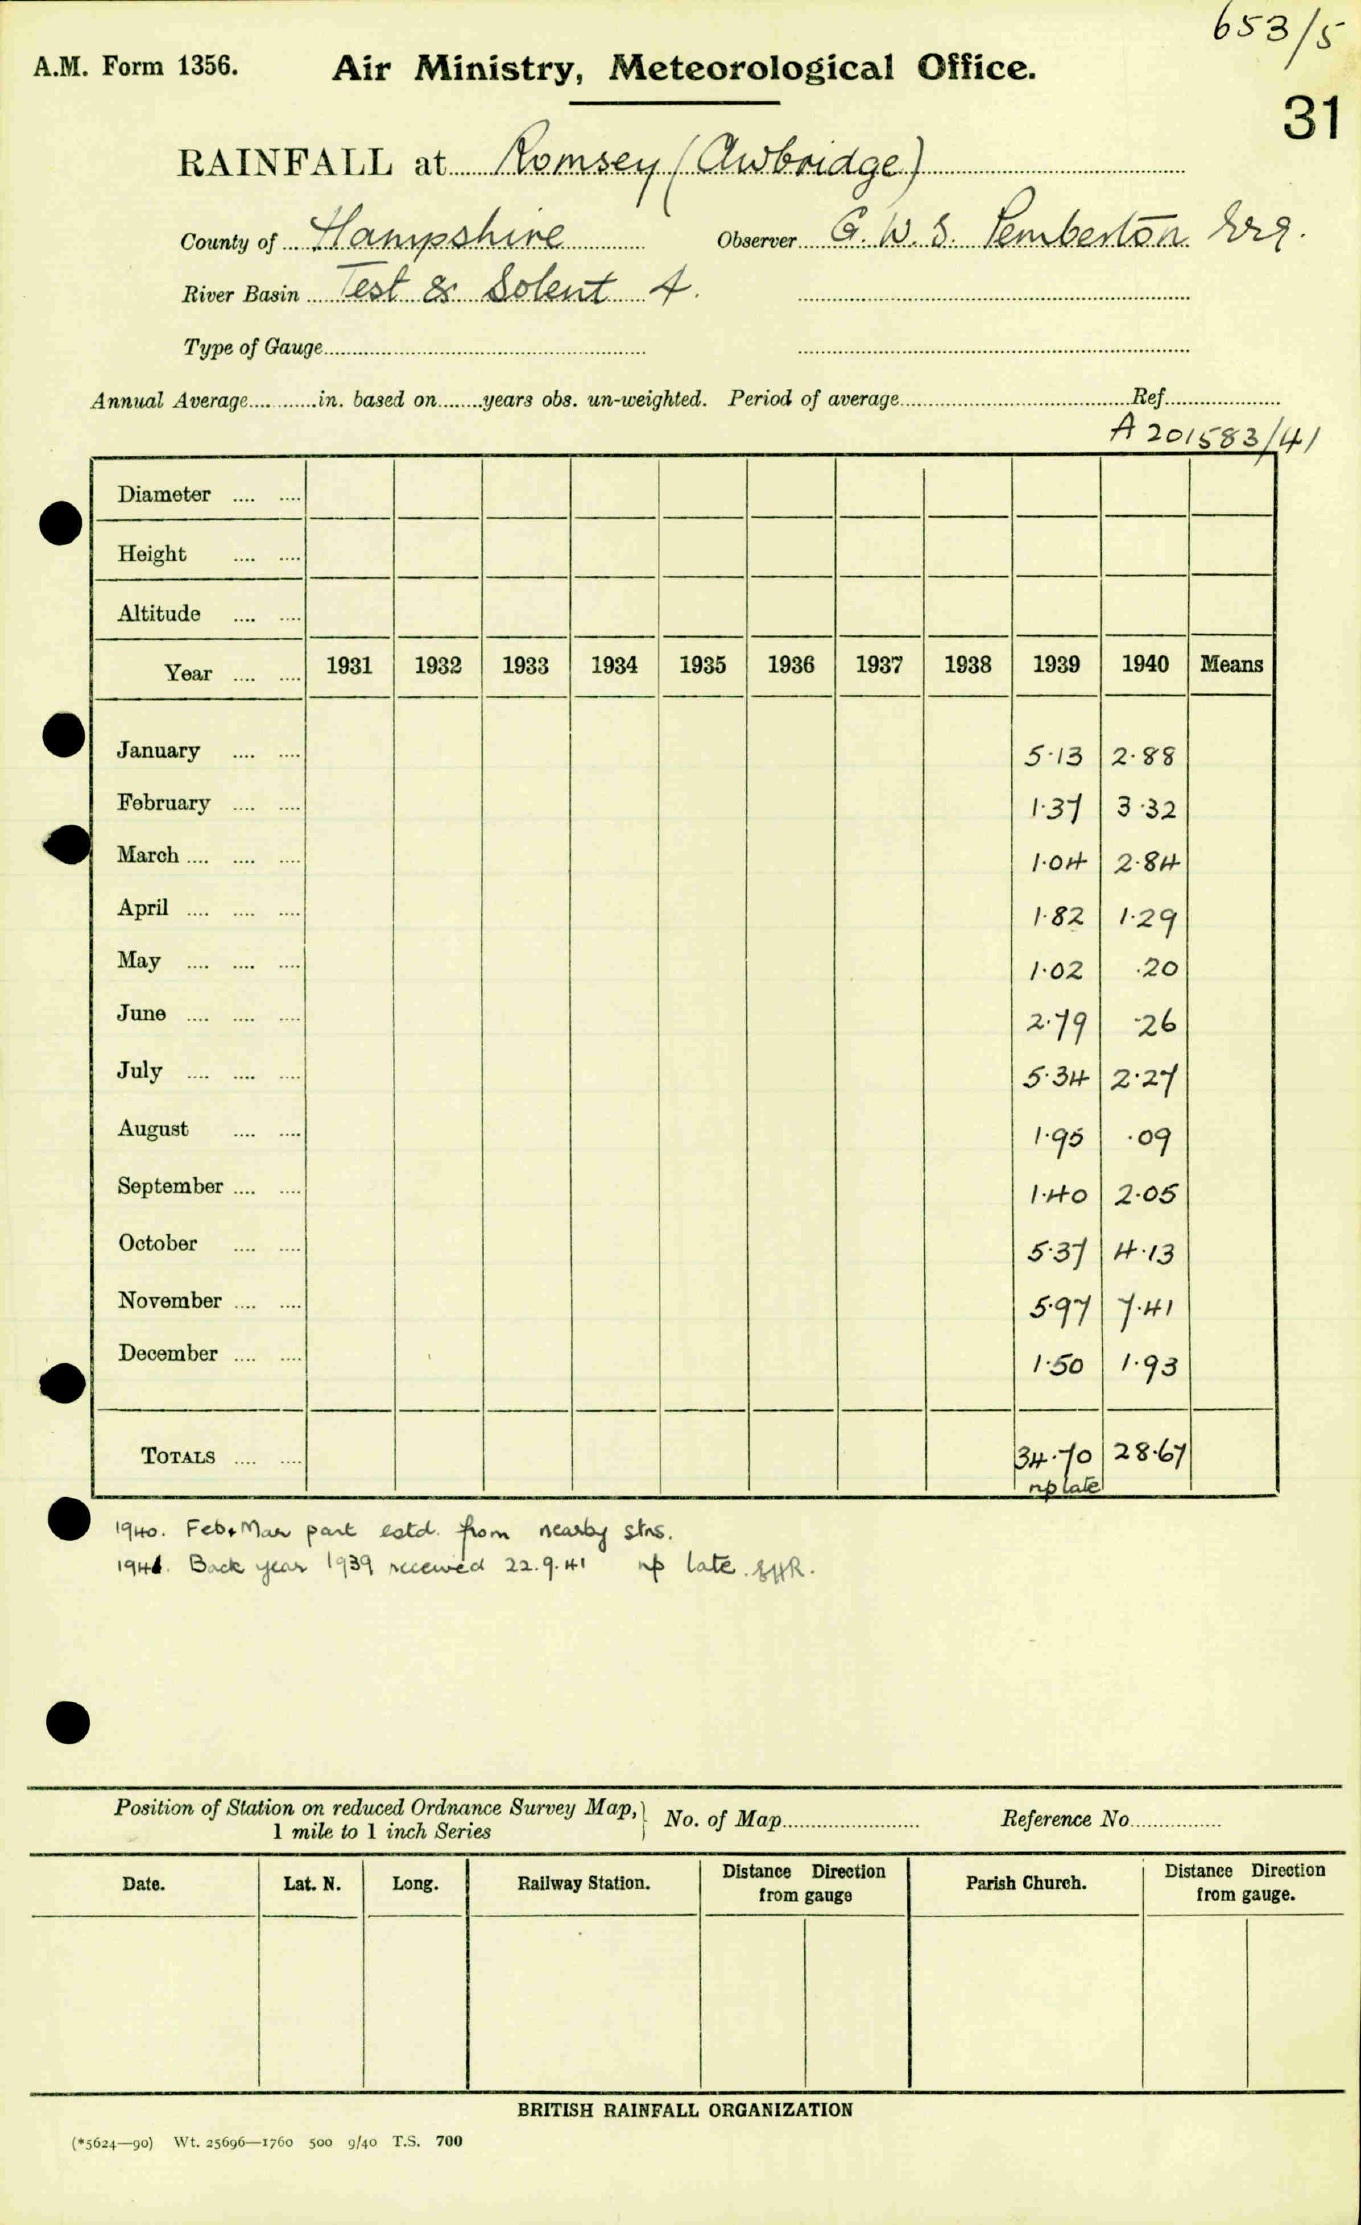 653/5
A.M. Form 1356. Air Ministry, Meteorological Office.
31
RAINFALL at Romsey (Awbridge)
County of Hampshire Observer G. W. S. Pemberton Esq.
River Basin Test & Solent 4.
Type of Gauge
Annual Average in. based on years obs. un-weighted. Period of average Ref.
A 201583/41
Diameter
Height
Altitude
Year 1931 1932 1933 1934 1935 1936 1937 1938 1939 1940 Means
January 5.13 2.88
February 1.37 3.32
March 1.04 2.84
April 1.82 1.29
May 1.02 .20
June 2.79 .26
July 5.34 2.27
August 1.95 .09
September 1.40 2.05
October 5.37 4.13
November 5.97 7.41
December 1.50 1.93
TOTALS 34.70 28.67
np late
1940. Feb & Mar part estd. from nearby stns.
1941. Back year 1939 received 22.9.41 np late.
Position of Station on reduced Ordnance Survey Map, No. of Map Reference No.
1 mile to 1 inch Series
Date. Lat. N. Long. Railway Station. Distance Direction from gauge Parish Church. Distance Direction from gauge.
BRITISH RAINFALL ORGANIZATION
(*5624—90) Wt. 25696—1760 500 9/40 T.S. 700